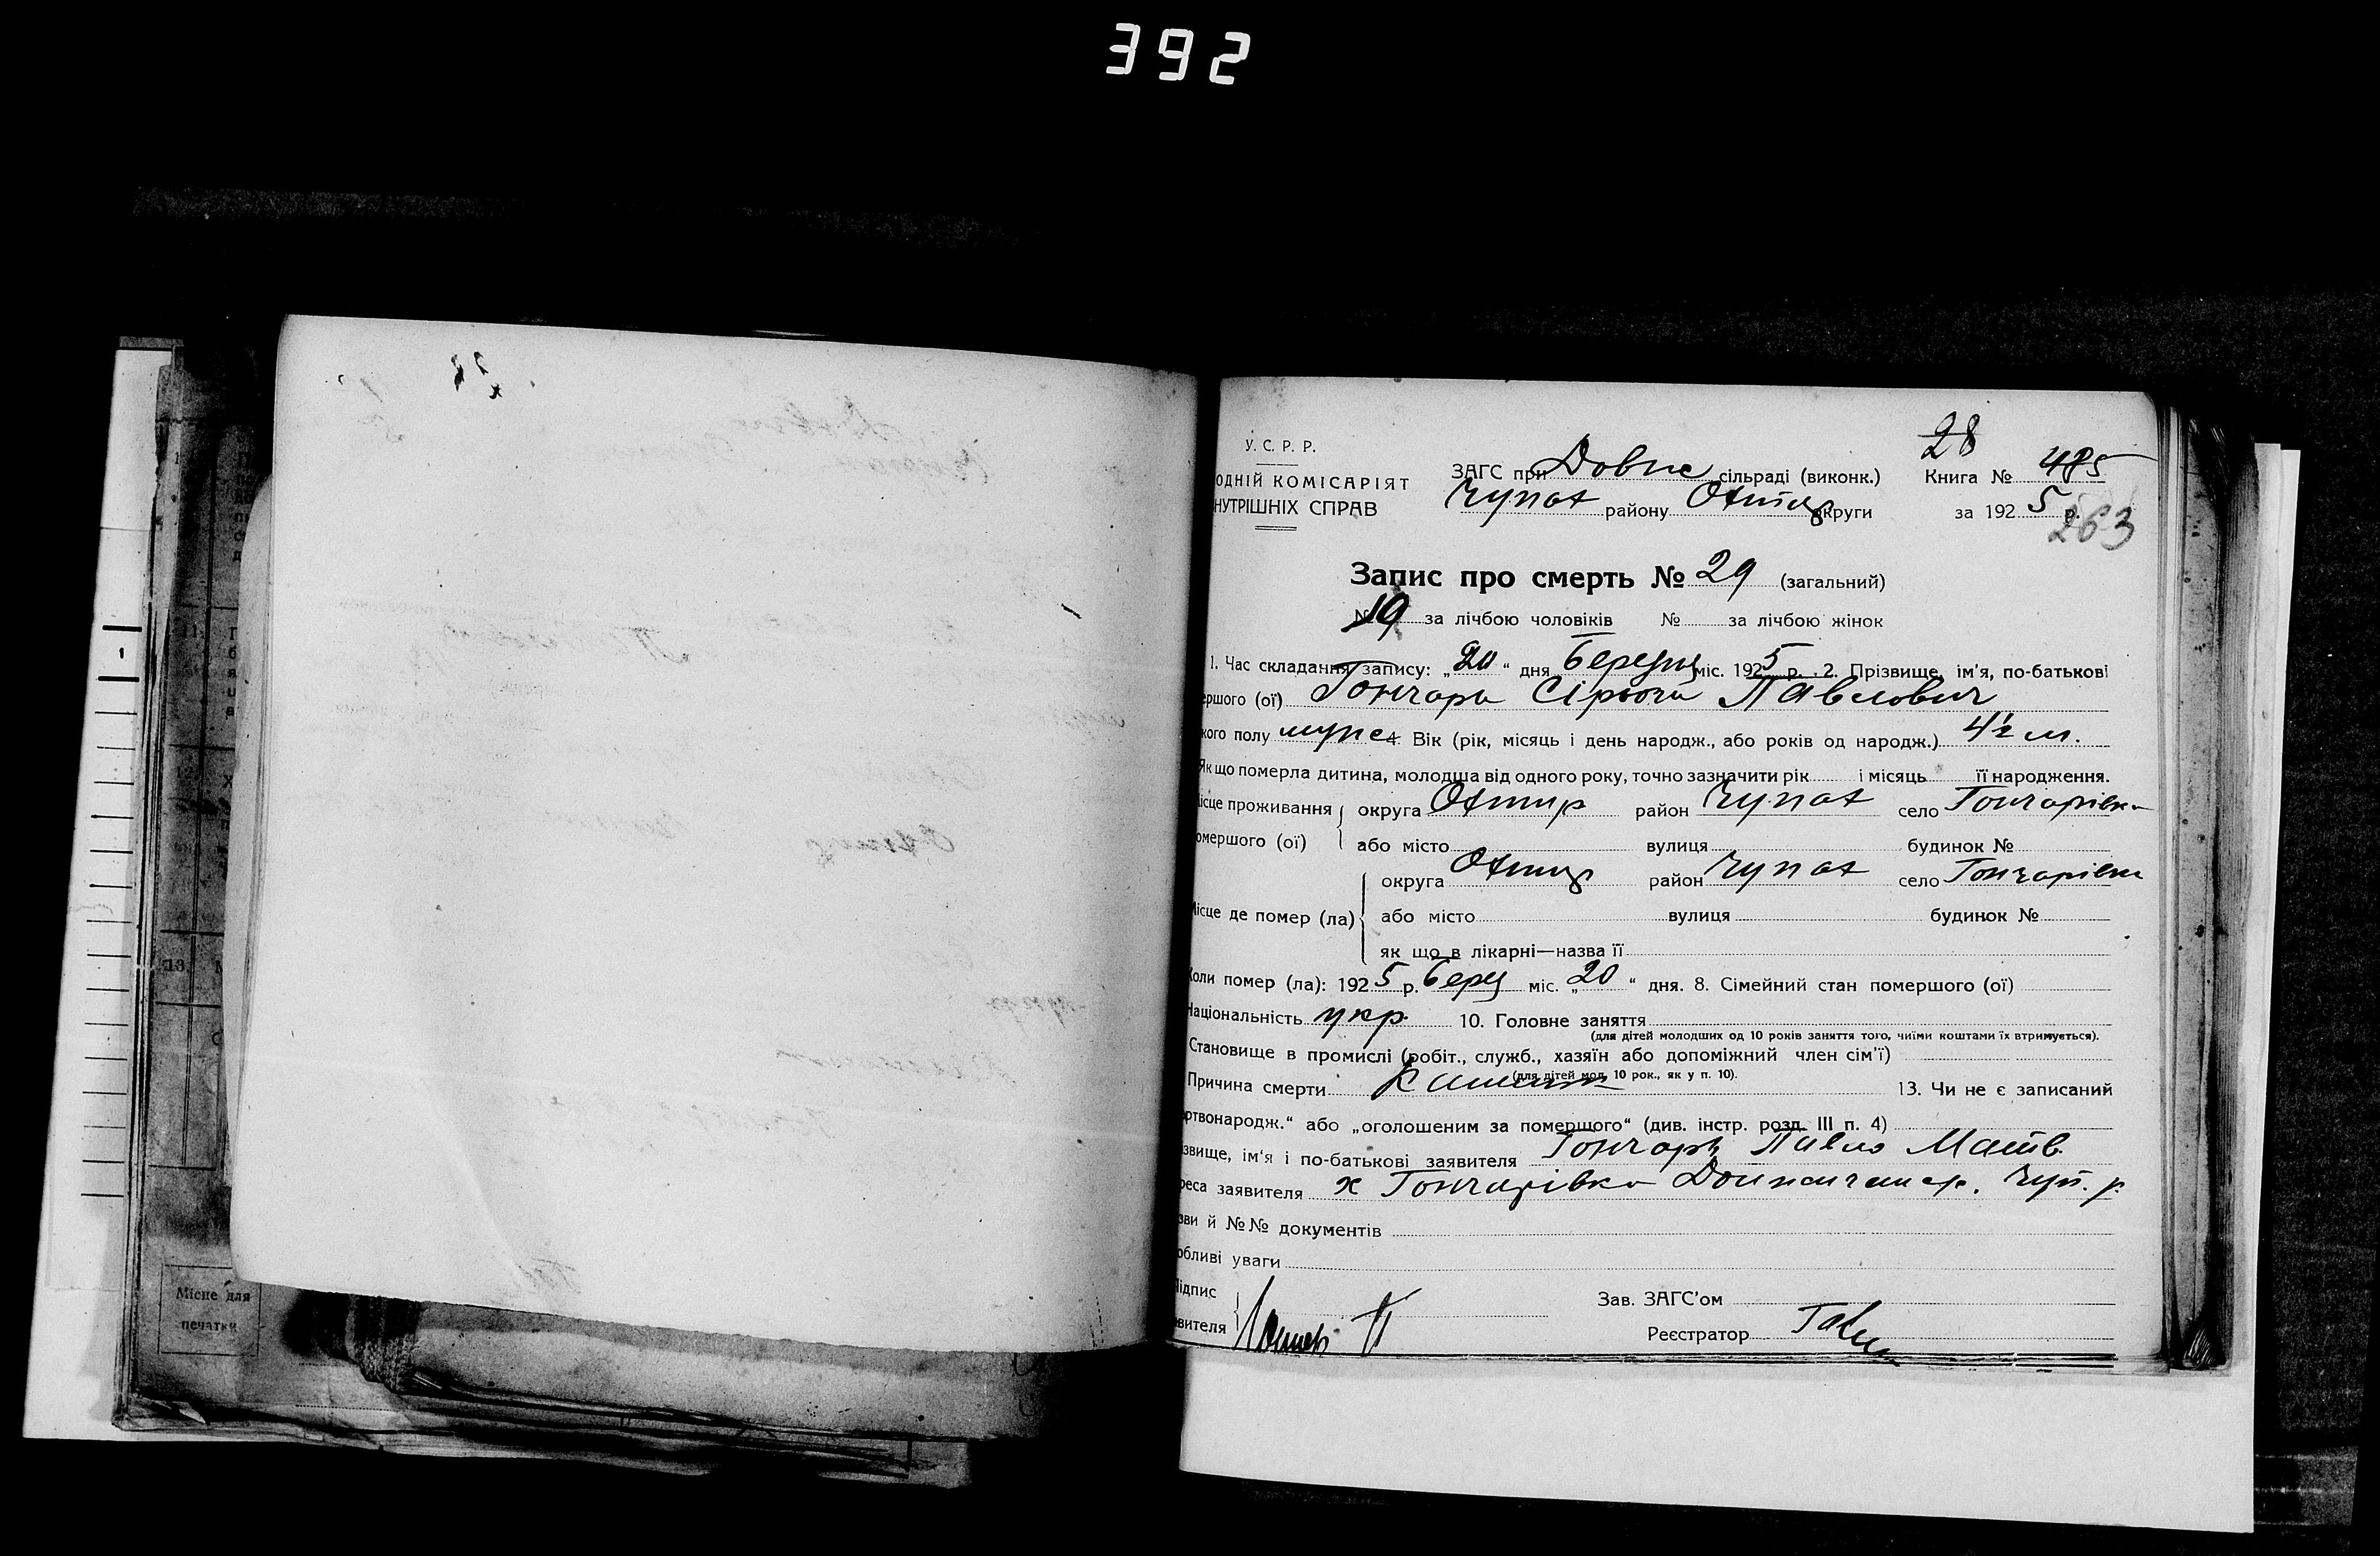 392
28
У. С. Р. Р.
ОДНІЙ КОМІСАРІЯТ
НУТРІШНІХ СПРАВ
ЗАГС при Довж сільраді (виконк.) Книга № 485
Чупах району Охтир округи за 1925 р.
263
Запис про смерть № 29 (загальний)
№ 19 за лічбою чоловіків № за лічбою жінок
1. Час складання запису: „20“ дня Березня міс. 1925 р. 2. Прізвище, ім'я, по-батькові
ершого (ої) Гончарь Павлович
кого полу муж 4. Вік (рік, місяць і день народж., або років од народж.) 4½ м.
Як що померла дитина, молодша від одного року, точно зазначити рік і місяць її народження.
ісце проживання округа Охтир район Чупах село Гончарівка
омершого (ої) або місто вулиця будинок №
округа Охтир район Чупах село Гончарівка
Місце де помер (ла) або місто вулиця будинок №
як що в лікарні—назва її
Коли помер (ла): 1925 р. Берез міс. „20“ дня. 8. Сімейний стан помершого (ої)
Національність укр. 10. Головне заняття
(для дітей молодших од 10 років заняття того, чиїми коштами їх втримується).
Становище в промислі (робіт., служб., хазяїн або допоміжний член сім'ї)
(для дітей мол. 10 рок., як у п. 10).
Причина смерти 13. Чи не є записаний
ртвонародж.“ або „оголошеним за померщого“ (див. інстр. розд. III п. 4)
звище, ім'я і по-батькові заявителя Гончарь Павло Матв.
реса заявителя х Гончарівка Чуп. р.
зви й №№ документів
обливі уваги
Підпис
явителя
Зав. ЗАГС'ом
Реєстратор
Місце для
печатки